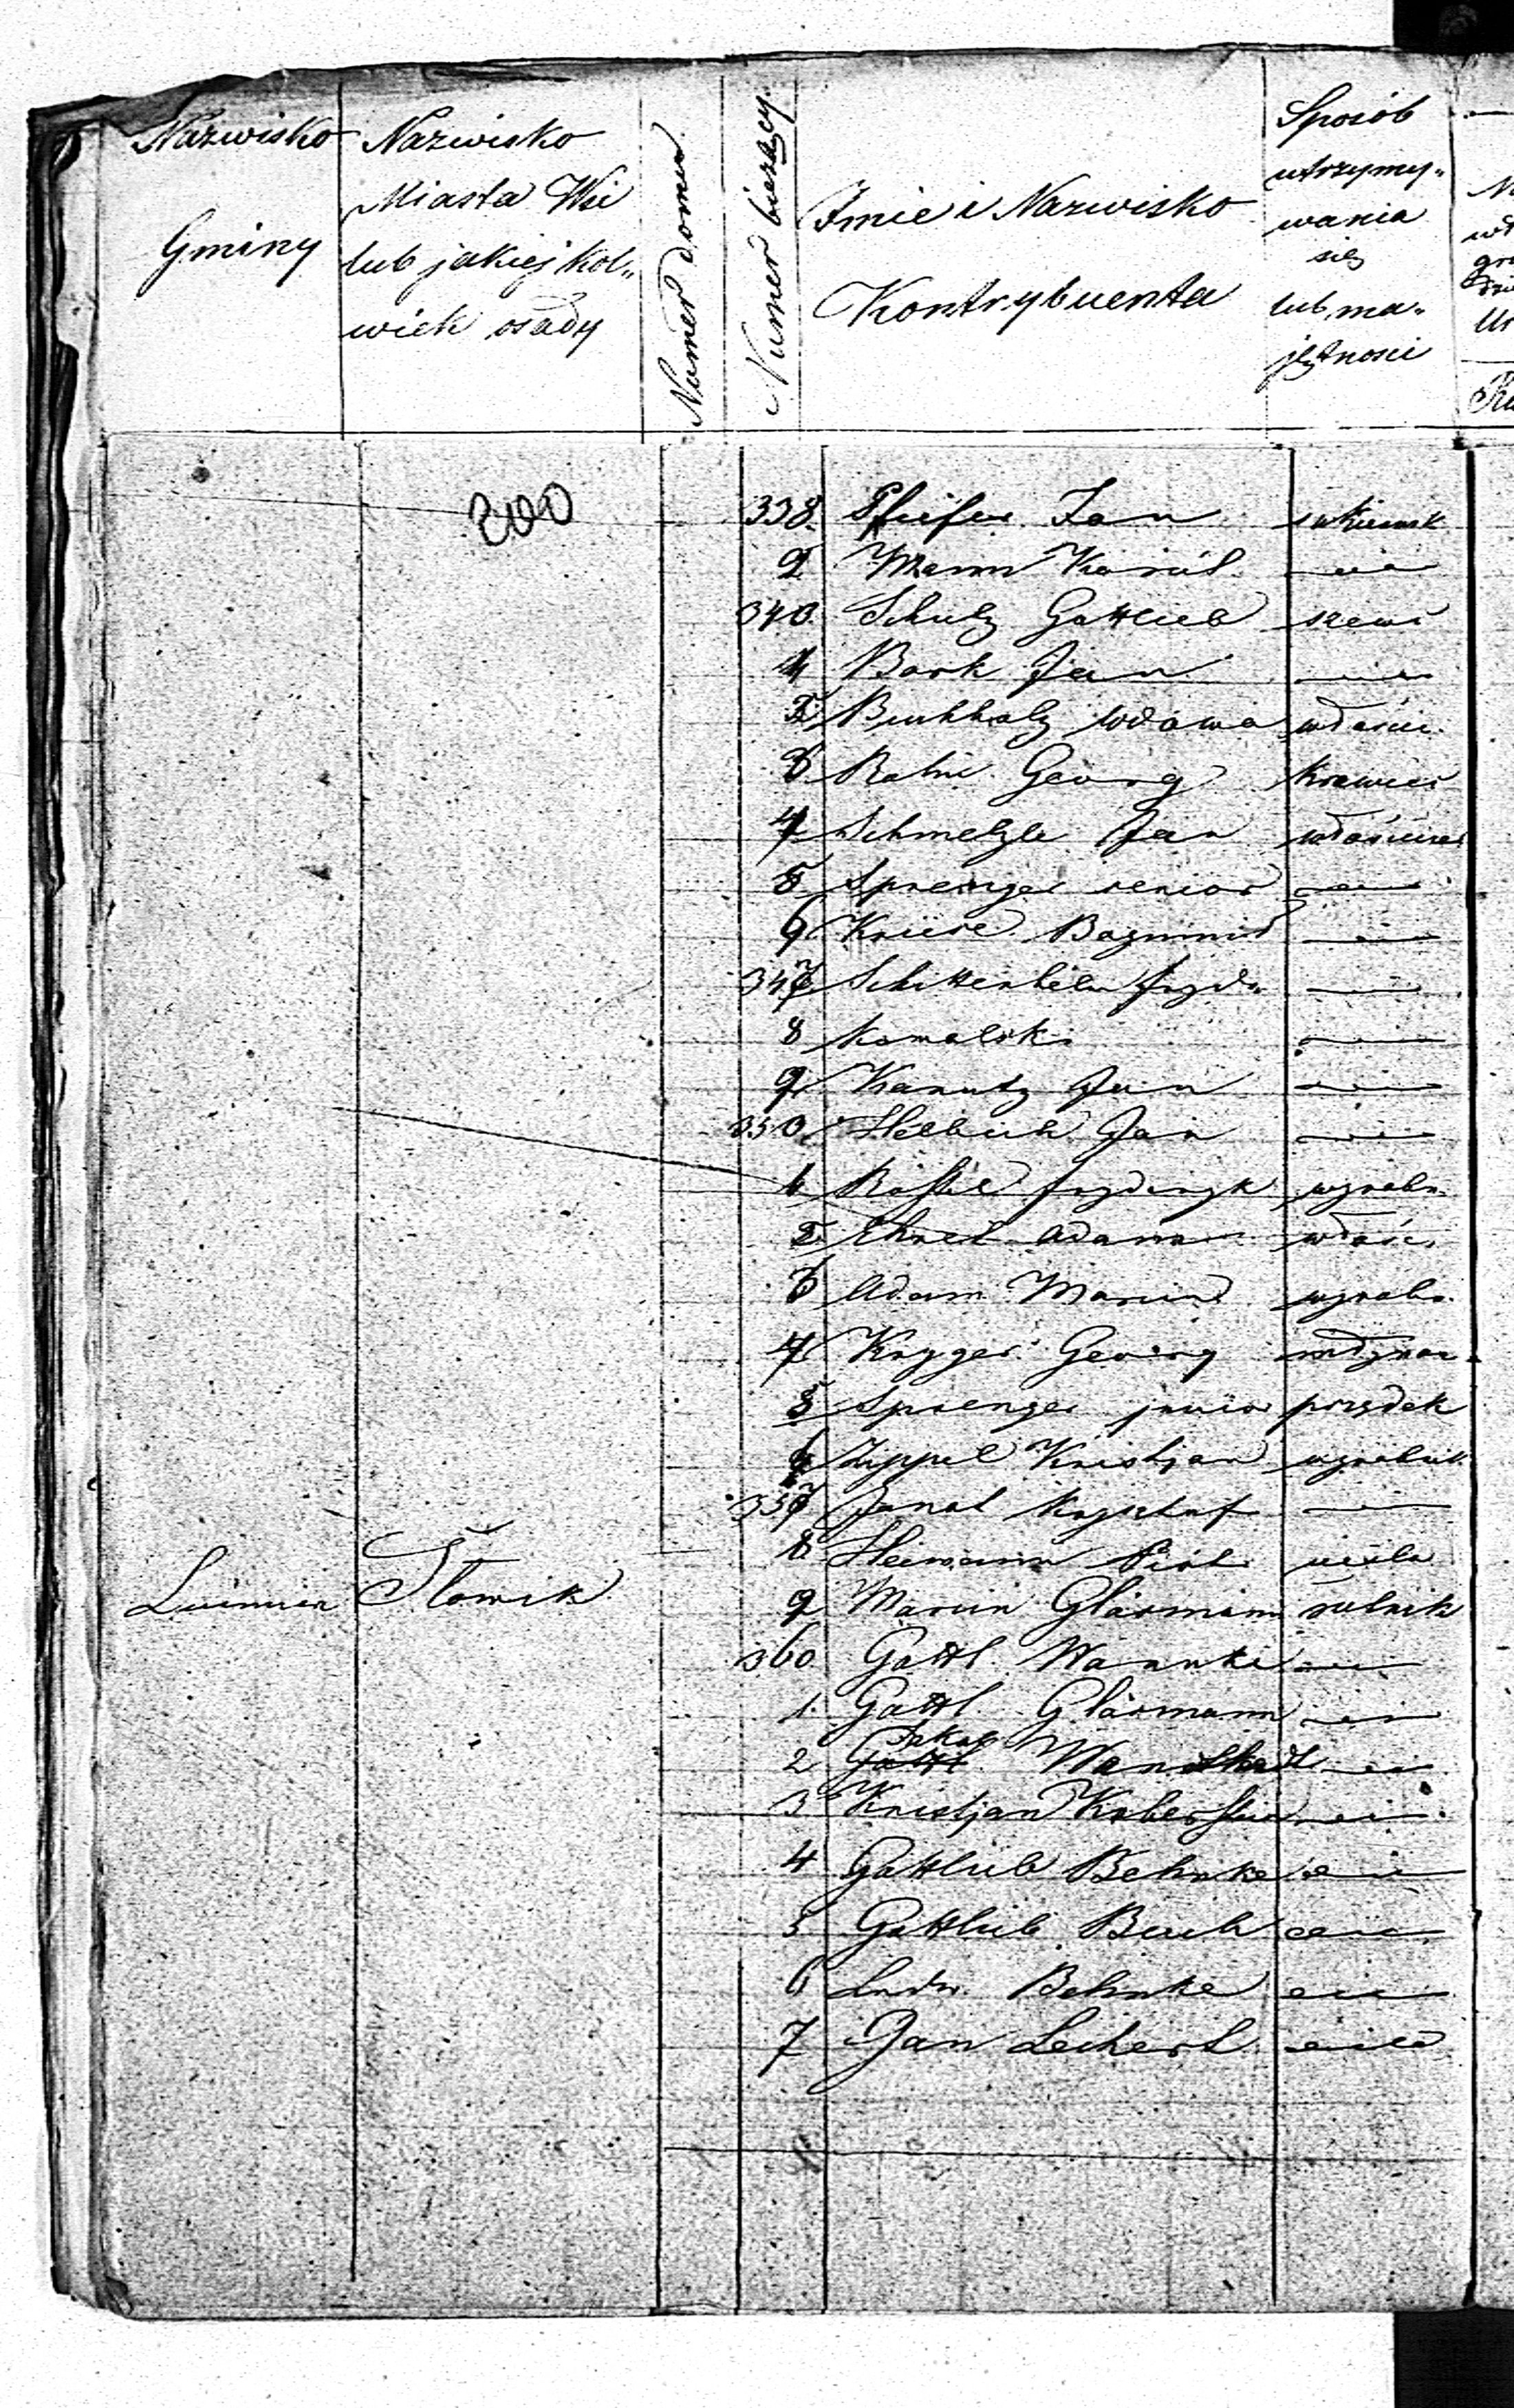 Nazwisko
Gminy
Nazwisko
Miasta Wsi
lub jakiej kol„
wiek osady
Numer domu
Numer bieżący.
Imie i Nazwisko
Kontrybuenta
Sposób
utrzymy„
wania
się
lub ma„
jętnosci
200
338. Pfeifer Jan sukiennik
9 Mann Karol
340. Schulz Gottlieb szewc
1 Bork Jan
2 Buchholz wdowa właścic.
3 Georg krawiec
4 Schmelzle Jan właściciel
5 Sprenger senior
6 Kruse Bogumił
347 Schittenhelm Fryd.
8 Kowalski
9 Kanutz Jan
350. Helbich Jan
1 Fryderyk wyrobn.
2. Adam właśc.
3 Adam Marcin wyrobn.
4 Kryger Georg młynarz
5 Sprenger junior porządek
6 Zippel Kristjan wyrobnik
357 Krysztof
8. Heimann Piotr cieśla
Słowik
9 Marcin Glasmann rolnik
360 Gottl.
1. Gottl. Glasmann
2 Jakob
3 Kristjan Koberstein
4 Gottlieb Behnke
5 Gottlieb
6 Ludw. Behnke
7 Jan Leichert